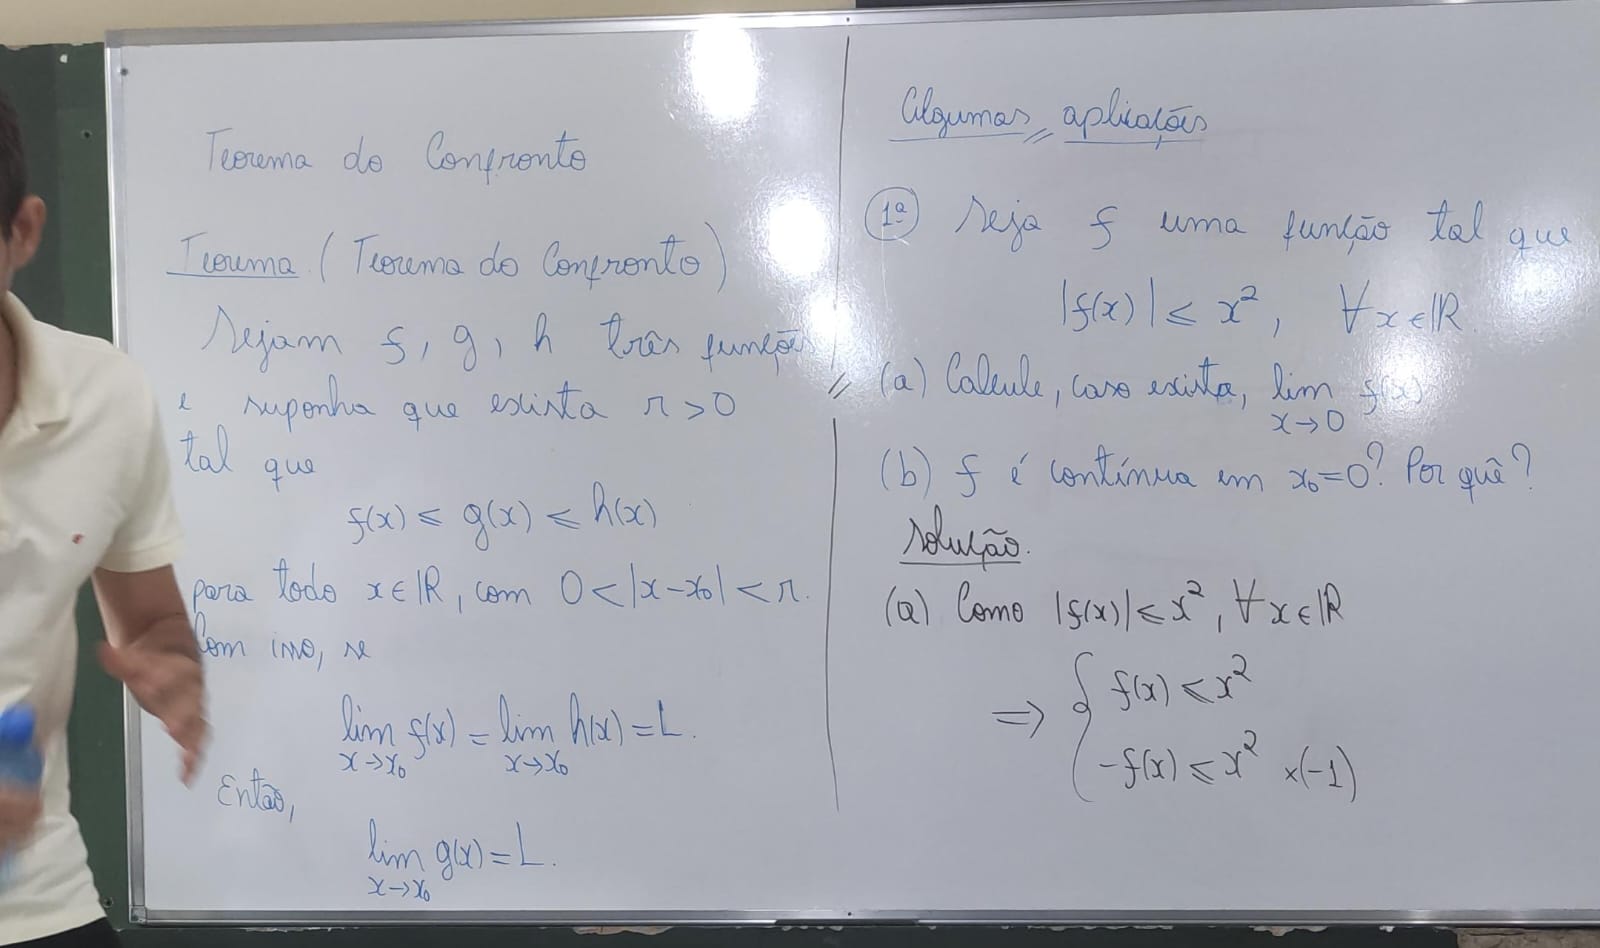 Teorema do Confronto
Teorema (Teorema do Confronto)
Sejam f, g, h três funções
e suponha que exista r>0
tal que
f(x) ⩽ g(x) ⩽ h(x)
para todo x∈ℝ, com 0<|x-x₀|<r.
Com isso, se
lim f(x) = lim h(x) = L.
x→x₀ x→x₀
Então,
lim g(x) = L.
x→x₀
Algumas aplicações
1ª Seja f uma função tal que
|f(x)| ⩽ x², ∀x∈ℝ.
(a) Calcule, caso exista, lim f(x)
x→0
(b) f é contínua em x₀=0? Por quê?
Solução.
(a) Como |f(x)| ⩽ x², ∀x∈ℝ
⇒ { f(x) ⩽ x²
-f(x) ⩽ x² ×(-1)